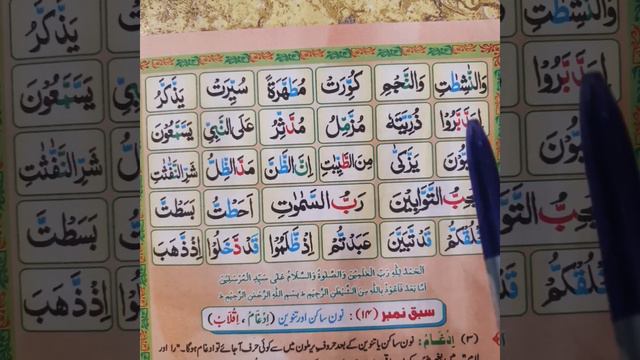 وَالنّٰشِطٰتِ وَالنَّجْمِ كُوِّرَتْ مُطَهَّرَةً سُيِّرَتْ يَذَّكَّرُ
ذُرِّيَّتِهٖ مُزَّمِّلُ مُدَّثِّرُ عَلَى النَّبِيِّ يَسَّمَّعُوْنَ
يَزَّكّٰى مِنَ الطَّيِّبٰتِ اِنَّ الظَّنَّ مَدَّ الظِّلَّ شَرِّ النَّفّٰثٰتِ
التَّوَّابِيْنَ رَبُّ السَّمٰوٰتِ اَحَطْتُّ بَسَطْتَّ
نَخْلُقْكُّمْ قَدْ تَّبَيَّنَ عَبَدْتُّمْ اِذْ ظَّلَمُوْا قَدْ دَّخَلُوْا اِذْ ذَّهَبَ
اَلْحَمْدُ لِلّٰهِ رَبِّ الْعٰلَمِيْنَ وَالصَّلٰوةُ وَالسَّلَامُ عَلٰى سَيِّدِ الْمُرْسَلِيْنَ
اَمَّا بَعْدُ فَاَعُوْذُ بِاللّٰهِ مِنَ الشَّيْطٰنِ الرَّجِيْمِ بِسْمِ اللّٰهِ الرَّحْمٰنِ الرَّحِيْمِ
سبق نمبر (۱۴): نون ساکن اور تنوین (اِدْغَام، اِقْلَاب)
(۳) اِدْغَام: نون ساکن یا تنوین کے بعد حروف یرملون میں سے کوئی حرف آجائے تو ادغام ہوگا "را اور